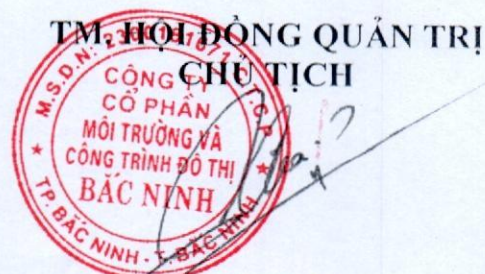 TM. HỘI ĐỒNG QUẢN TRỊ
CHỦ TỊCH
CÔNG TY
CỔ PHẦN
MÔI TRƯỜNG VÀ
CÔNG TRÌNH ĐÔ THỊ
BẮC NINH
TP. BẮC NINH - T. BẮC NINH